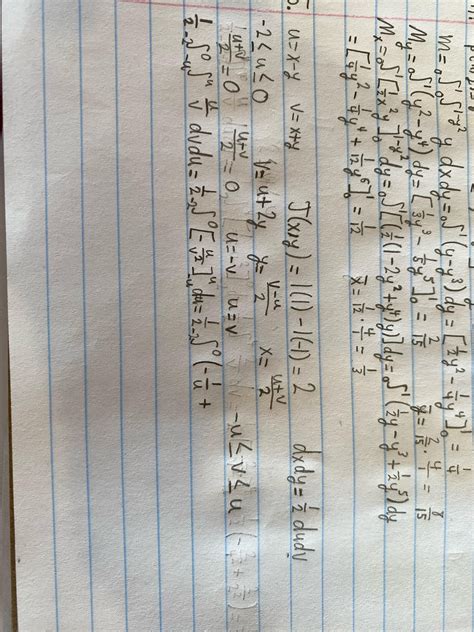 m = ₀∫¹ ₀∫^(1-y²) y dxdy = ₀∫¹ (y-y³) dy = [½y² - ¼y⁴]₀¹ = ¼
My = ₀∫¹ (y²-y⁴) dy = [⅓y³ - ⅕y⁵]₀¹ = 2/15 ȳ = 2/15 · 4/1 = 8/15
Mx = ₀∫¹ [½x²y]₀^(1-y²) dy = ₀∫¹ [(½(1-2y²+y⁴)y] dy = ₀∫¹ (½y - y³ + ½y⁵) dy
= [¼y² - ¼y⁴ + 1/12 y⁶]₀¹ = 1/12 x̄ = 1/12 · 4/1 = 1/3
5. u = x-y v = x+y J(x,y) = 1(1) - 1(-1) = 2 dxdy = ½ dudv
-2 ≤ u ≤ 0 v = u+2y y = (v-u)/2 x = (u+v)/2
(u+v)/2 = 0 (u+v)/2 = 0 u = -v u = v -u ≤ v ≤ u
½ ₋₂∫⁰ ₋ᵤ∫ᵘ u/v dvdu = ½ ₋₂∫⁰ [-u/v²]₋ᵤᵘ du = ½ ₋₂∫⁰ (-1/u +